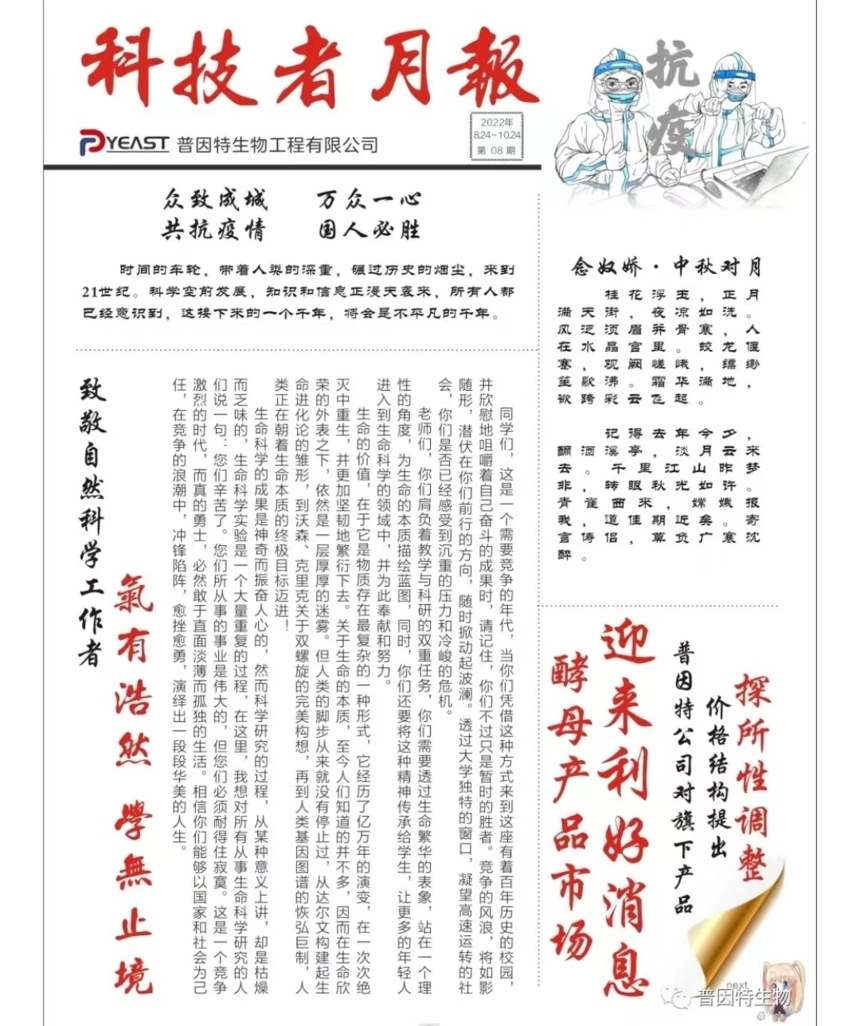 科技者月報
抗疫
PYEAST 普因特生物工程有限公司
2022年
8.24~10.24
第 08 期
众致成城 万众一心
共抗疫情 国人必胜
时间的车轮，带着人类的深重，碾过历史的烟尘，来到
21世纪。科学空前发展，知识和信息正漫天袭来，所有人都
已经意识到，这接下来的一个千年，将会是不平凡的千年。
念奴娇·中秋对月
桂花浮玉，正月
满天街，夜凉如洗。
风泛须眉并骨寒，人
在水晶宫里。蛟龙偃
蹇，观阙嵯峨，缥缈
笙歌沸。霜华满地，
欲跨彩云飞起。
记得去年今夕，
酾酒溪亭，淡月云来
去。千里江山昨梦
非，转眼秋光如许。
青雀西来，嫦娥报
我，道佳期近矣。寄
言俦侣，莫负广寒沈
醉。
同学们，这是一个需要竞争的年代，当你们凭借这种方式来到这座有着百年历史的校园，
并欣慰地咀嚼着自己奋斗的成果时，请记住，你们不过只是暂时的胜者。竞争的风浪，将如影
随形，潜伏在你们前行的方向，随时掀动起波澜。透过大学独特的窗口，凝望高速运转的社
会，你们是否已经感受到沉重的压力和冷峻的危机。
老师们，你们肩负着教学与科研的双重任务，你们需要透过生命繁华的表象，站在一个理
性的角度，为生命的本质描绘蓝图，同时，你们还要将这种精神传承给学生，让更多的年轻人
进入到生命科学的领域中，并为此奉献和努力。
生命的价值，在于它是物质存在最复杂的一种形式，它经历了亿万年的演变，在一次次绝
灭中重生，并更加坚韧地繁衍下去。关于生命的本质，至今人们知道的并不多，因而在生命欣
荣的外表之下，依然是一层厚厚的迷雾。但人类的脚步从来就没有停止过，从达尔文构建起生
命进化论的雏形，到沃森、克里克关于双螺旋的完美构想，再到人类基因图谱的恢弘巨制，人
类正在朝着生命本质的终极目标迈进！
生命科学的成果是神奇而振奋人心的，然而科学研究的过程，从某种意义上讲，却是枯燥
而乏味的，生命科学实验是一个大量重复的过程，在这里，我想对所有从事生命科学研究的人
们说一句：您们辛苦了。您们所从事的事业是伟大的，但您们必须耐得住寂寞。这是一个竞争
激烈的时代，而真的勇士，必然敢于直面淡薄而孤独的生活。相信你们能够以国家和社会为己
任，在竞争的浪潮中，冲锋陷阵，愈挫愈勇，演绎出一段段华美的人生。
氣有浩然 學無止境
致敬自然科学工作者
探所性调整
价格结构提出
普因特公司对旗下产品
迎来利好消息
酵母产品市场
next
普因特生物